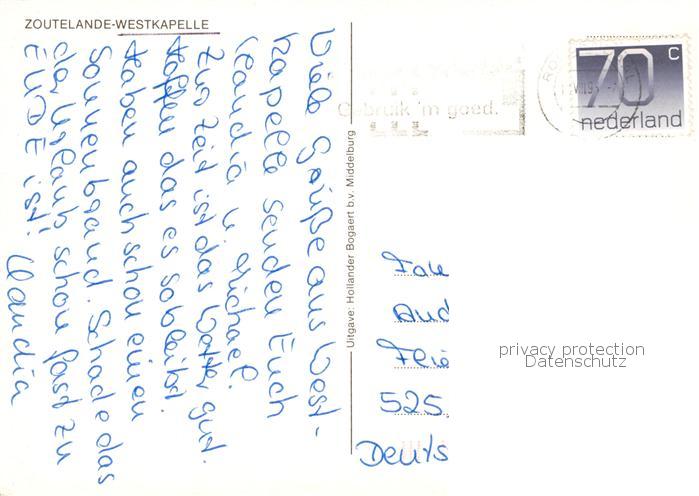 ZOUTELANDE-WESTKAPELLE
Viele Grüße aus West-
kapelle senden Euch
Claudia u Michael.
Zur Zeit ist das Wetter gut.
Hoffen das es so bleibt.
Haben auch schon einen
Sonnenbrand. Schade das
der Urlaub schon fast zu
ENDE ist! Claudia
Uitgave: Hollander Bogaert b.v. Middelburg
Gebruik 'm goed.
70 c
nederland
Fam
And
525
Deuts
privacy protection
Datenschutz